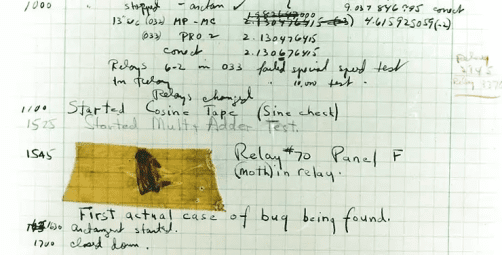 1000 " stopped - arctan ✓ 9.037 846 795 correct
13" uc (032) MP - MC 2.130476415 4.615925059(-2)
(033) PRO 2 2.130476415
correct 2.130676415
Relays 6-2 in 033 failed special speed test
in Relay " 10,000 test.
Relay
Relays changed
1100 Started Cosine Tape (Sine check)
1525 Started Mult + Adder Test.
1545 Relay #70 Panel F
(moth) in relay.
First actual case of bug being found.
1630 antangent started.
1700 closed down.